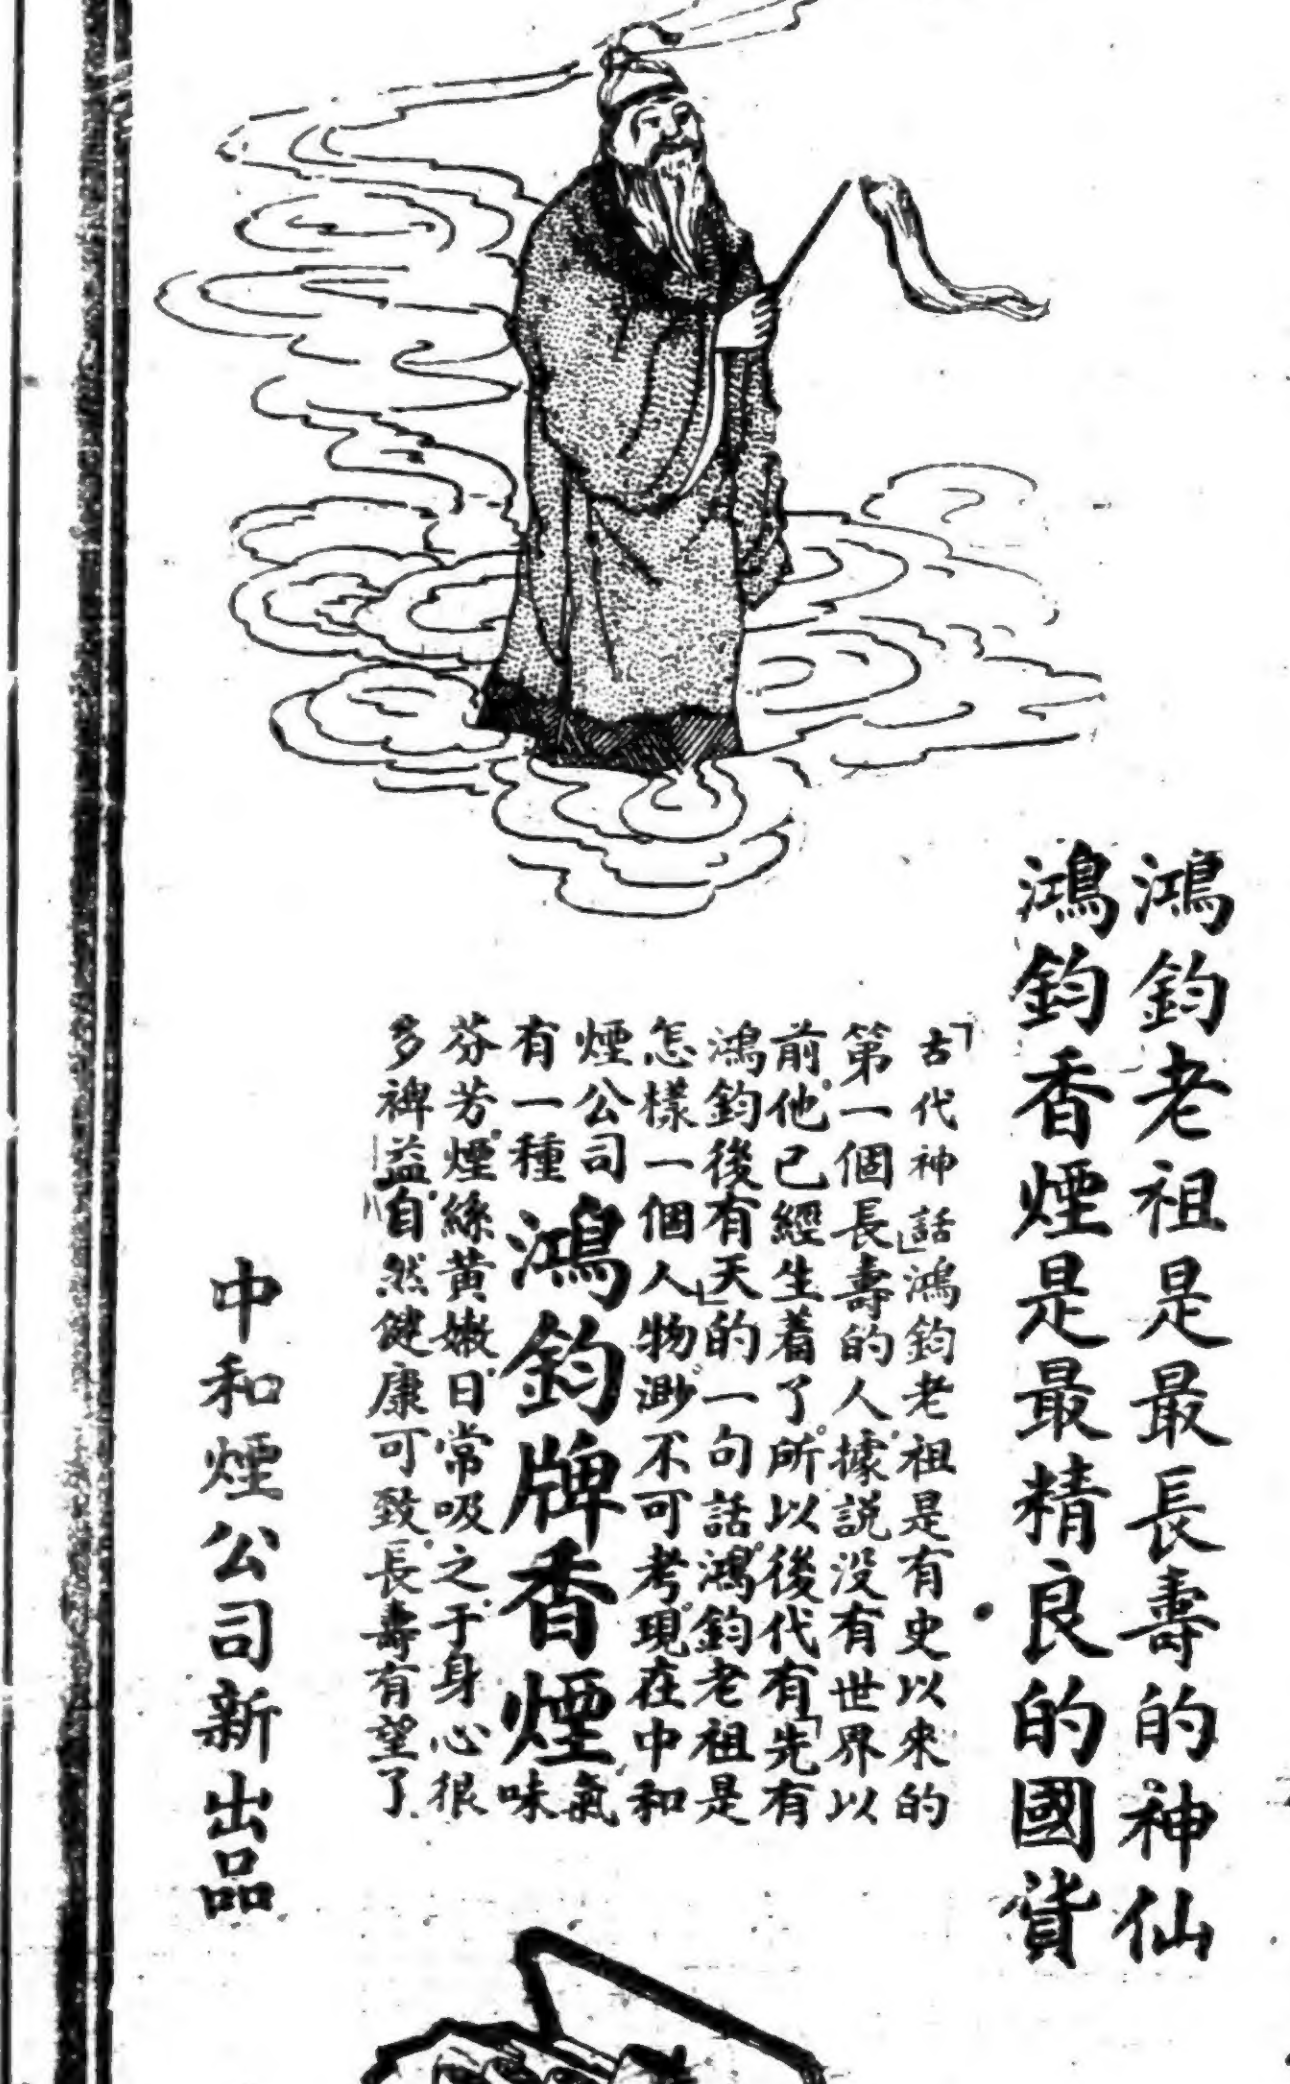 鴻鈞老祖是最長壽的神仙
鴻鈞香煙是最精良的國貨
「古代神話」鴻鈞老祖是有史以來的
第一個長壽的人。據説没有世界以
前。他已經生着了。所以後代有「先有
鴻鈞後有天」的一句話。鴻鈞老祖是
怎樣一個人物。渺不可考。現在中和
煙公司
有一種
鴻鈞牌香煙
氣
味
芬芳。煙絲黃嫩。日常吸之。于身心很
多裨益。自然健康可致。長壽有望了。
中和煙公司新出品